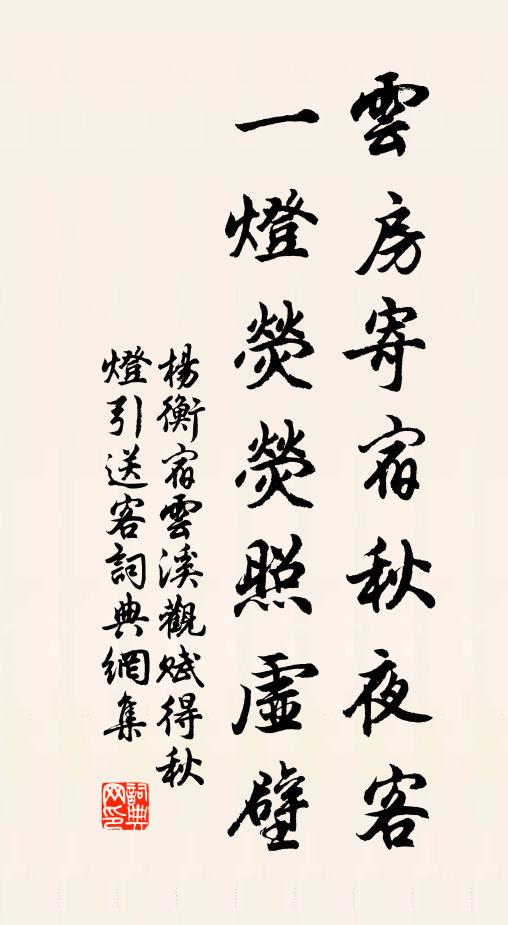 雲房寄宿秋夜客
一燈熒熒照虛壁
楊衡宿雲溪觀賦得秋
燈引送客詞典網集
詞典网印